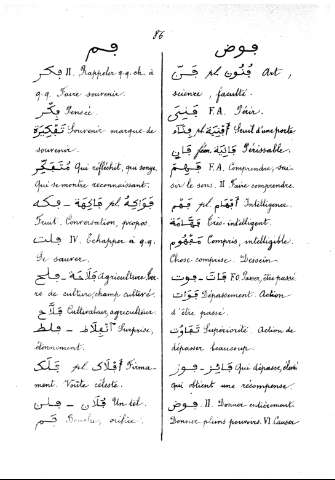 86
فم
فكر II. Rappeler q.q.ch. à
q.q. Faire souvenir.
فكر Pensée.
تفكيرة Souvenir marque de
souvenir.
متفكر Qui réfléchit, qui songe,
Qui se montre reconnaissant.
فكه – فاكهة pl. فواكه
Fruit. Conversation, propos.
فلت IV. Echapper à q.q.
Se sauver.
فلح – فلاحة Agriculture, ter-
re de culture, champ cultivé.
فلاح Cultivateur, agriculteur.
فلط – Surprise,
étonnement.
فلك pl. افلاك Firma-
ment. Voûte céleste.
فلن – فلان Un tel.
فم Bouche, orifice.
فوض
فن pl. فنون Art,
science, faculté.
فنى F.A. Périr.
فناء pl. افنية Seuil d'une porte
فان fém. فانية Périssable.
فهم F.A. Comprendre, sai-
sir le sens. II Faire comprendre.
فهم pl. افهام Intelligence.
فهامة Très-intelligent.
مفهوم Compris, intelligible.
Chose comprise. Dessein.
فوت – فات Fo Passer, être passé.
فوات Dépassement. Action
d'être passé.
تفاوت Supériorité Action de
dépasser beaucoup.
فوز – فائز Qui dépasse,
qui obtient une récompense.
فوض II. Donner entièrement.
Donner pleins pouvoirs. VI Causer